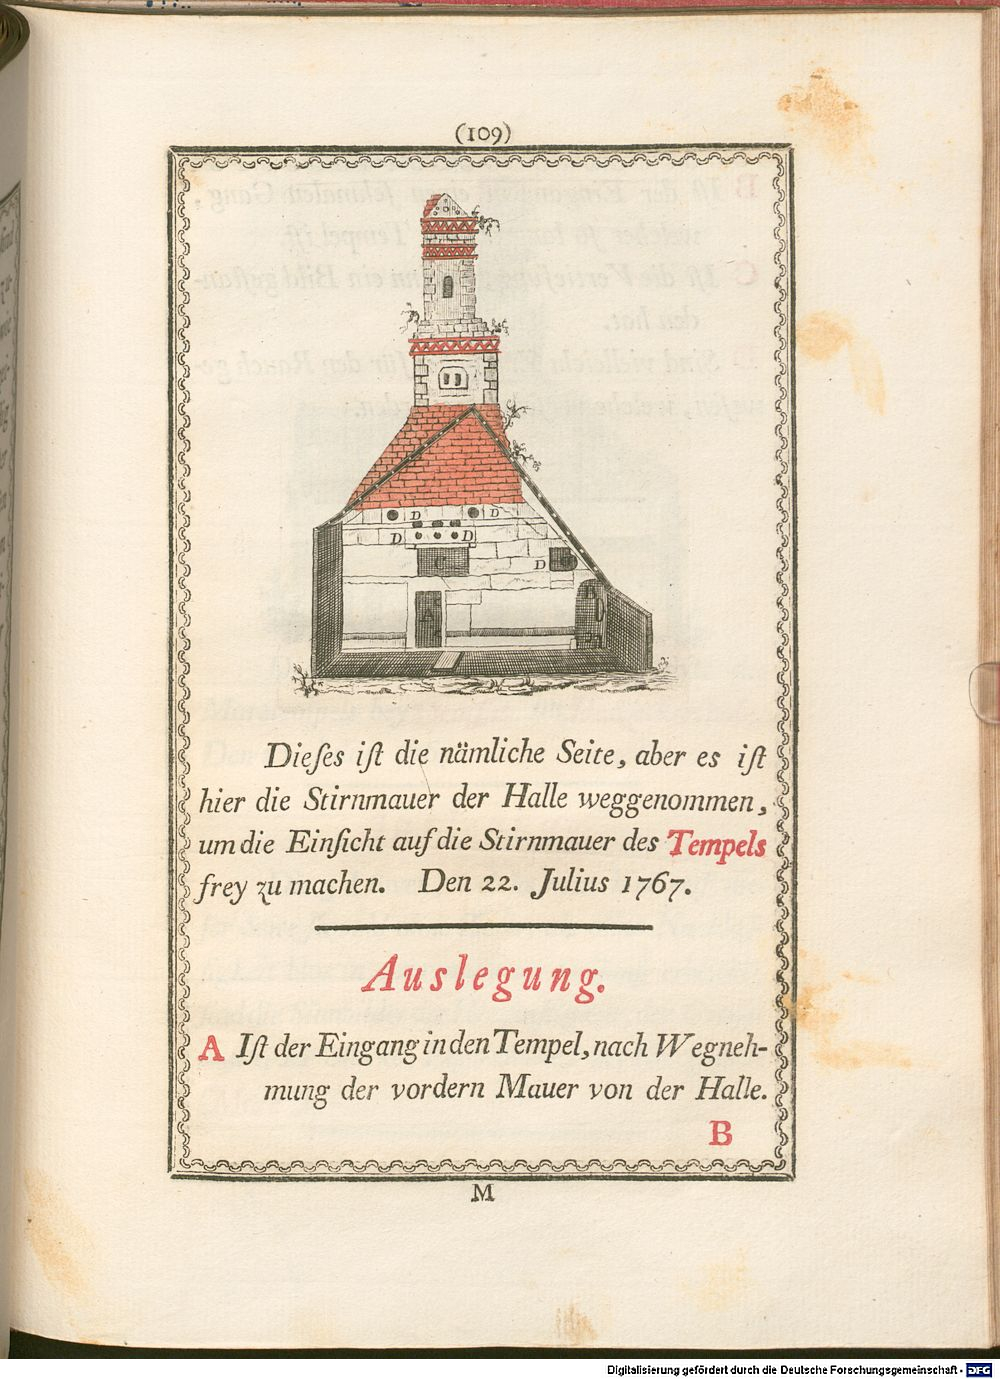 (109)
D
D
D
D
C
D
A
B
Dieſes iſt die nämliche Seite, aber es iſt
hier die Stirnmauer der Halle weggenommen,
um die Einſicht auf die Stirnmauer des Tempels
frey zu machen. Den 22. Julius 1767.
Auslegung.
A Iſt der Eingang in den Tempel, nach Wegneh-
mung der vordern Mauer von der Halle.
B
M
Digitalisierung gefördert durch die Deutsche Forschungsgemeinschaft - DFG